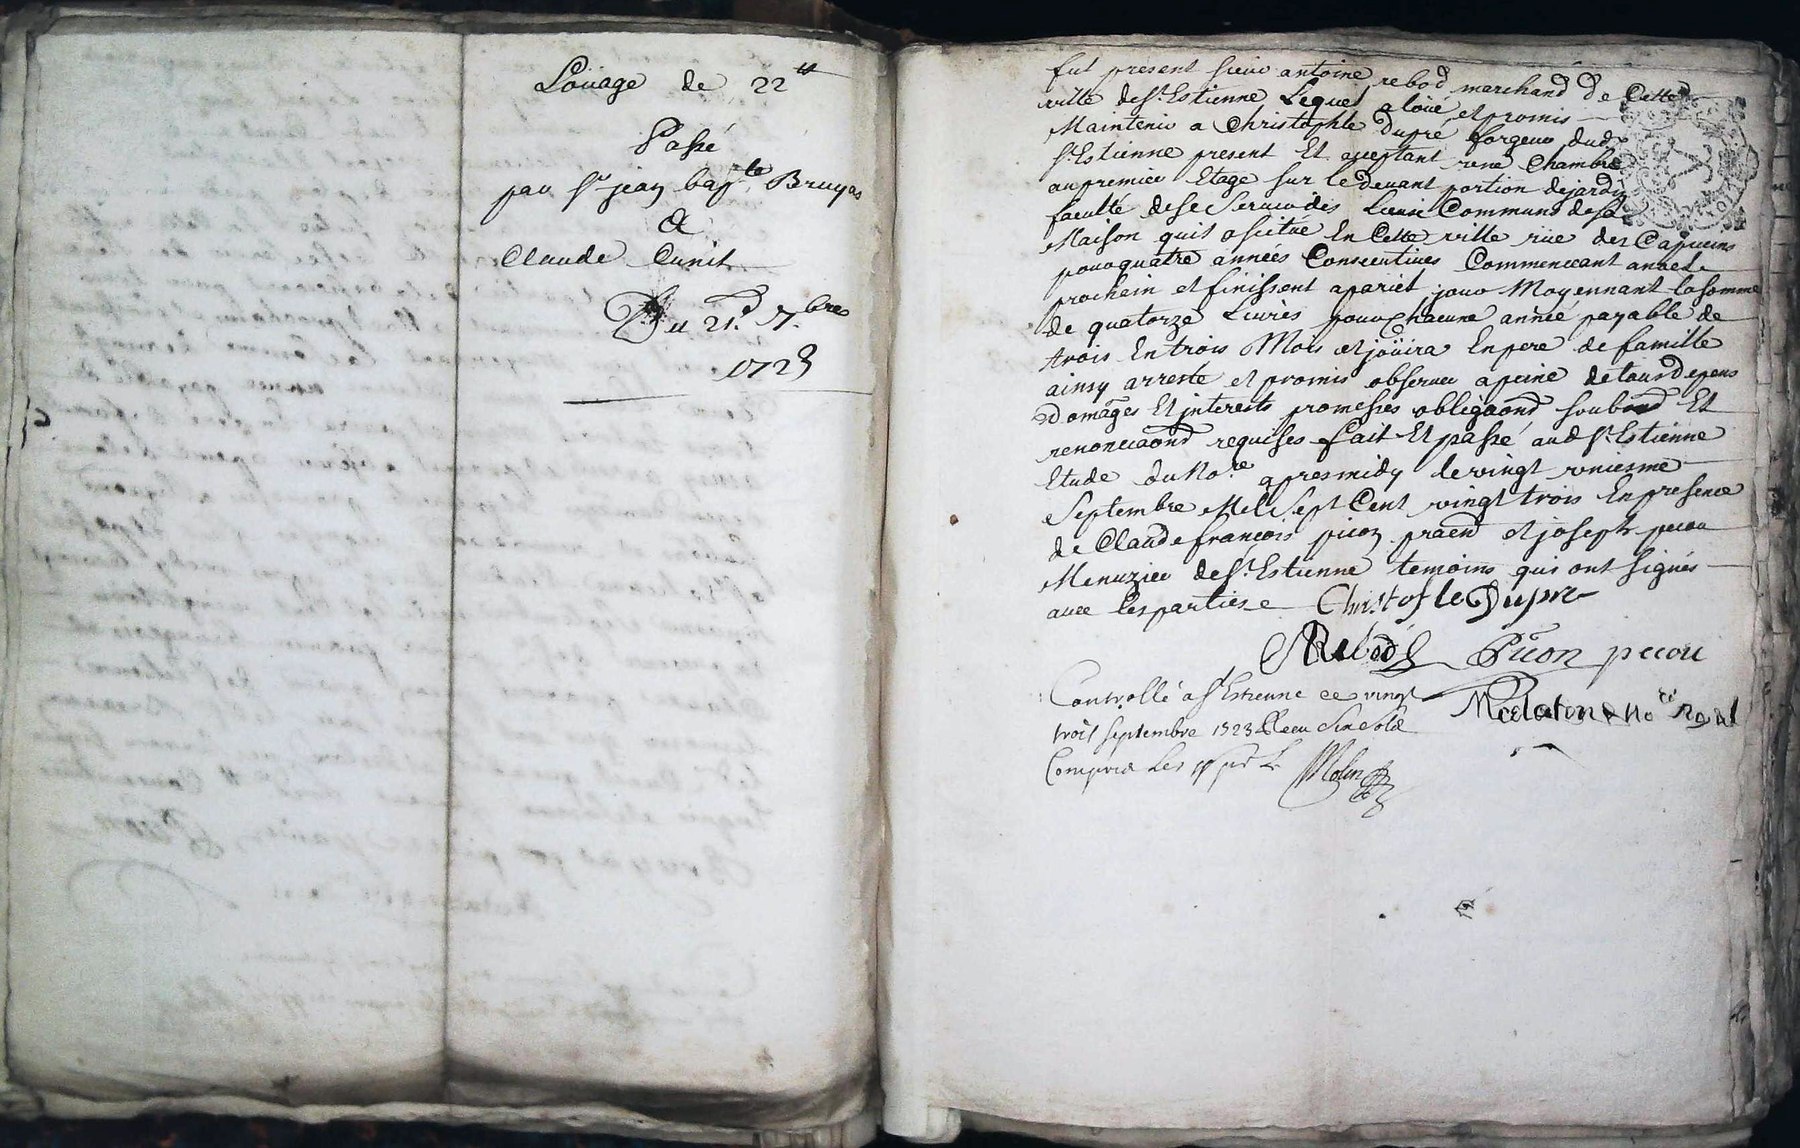 Loüage de 22ᵗᵗ
Passé
par Sʳ jean bapᵗᵉ Bruyas
A
Claude Cunit
Du 21ᵈ 7.bres
1723
fut present sieur antoine rebod marchand de Cette
ville de Sᵗ Estienne Lequel a loüé et promis
Maintenir a Christophle dupré forgeur dud
Sᵗ Estienne present Et acceptant une Chambre
au premier Etage sur le devant portion de jardin
faculté de se servir des Lieux Communs de sa
Maison quil a scitüé En Cette ville rüe des Capucins
pour quatre années Consecutives Commencant a noel
prochain et finissent a pariet jour Moyennant la somme
de quatorze Livres pour chacune année payable de
trois En trois Mois et joüira En pere de famille
ainsy arresté et promis observer a peine de tous depens
domages Et interests promesses obligaond soubmd Et
renonciaond requises fait Et passé aud Sᵗ Estienne
Etude du Noʳᵉ apres midy le vingt uniesme
Septembre Mil Sept Cent vingt trois En presence
de Claude francois picon pracn et joseph pecou
Menuzier de Sᵗ Estienne temoins qui ont signés
avec les parties Christofle Dupre
Rebod Picon pecou
Controllé a Sᵗ Estienne ce vingt
trois septembre 1723 Receu six sols
Compris les Molin
noʳᵉ Royal